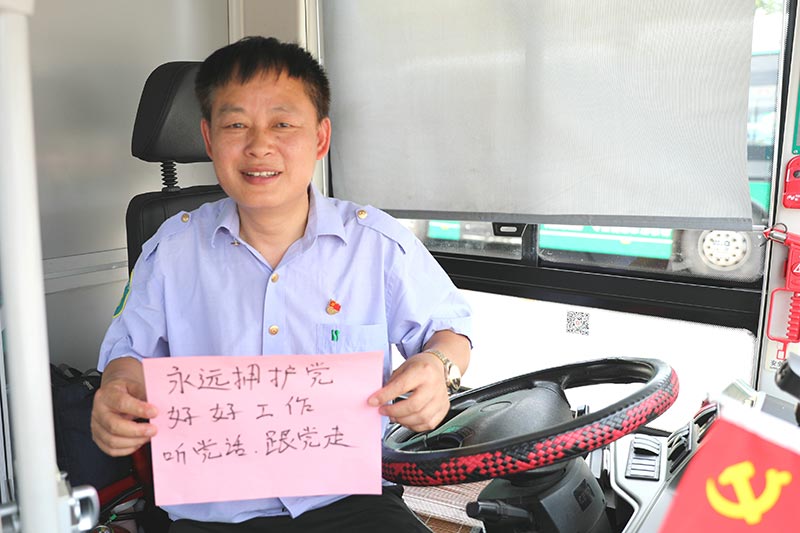 永远拥护党
好好工作
听党话.跟党走